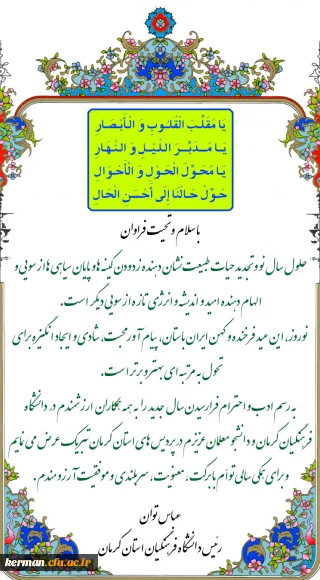 يَا مُقَلِّبَ الْقُلُوبِ وَ الْأَبْصَارِ
يَا مُدَبِّرَ اللَّيْلِ وَ النَّهَارِ
يَا مُحَوِّلَ الْحَوْلِ وَ الْأَحْوَالِ
حَوِّلْ حَالَنَا إِلَى أَحْسَنِ الْحَالِ
با سلام و تحیت فراوان
حلول سال نو و تجدید حیات طبیعت نشان دهنده زدودن کینه ها و پایان سیاهی ها از سویی و
الهام دهنده امید و اندیشه و انرژی تازه از سویی دیگر است.
نوروز، این عید فرخنده و کهن ایران باستان، پیام آور محبت، شادی و ایجاد انگیزه برای
تحول به مرتبه ای بهتر و برتر است.
به رسم ادب و احترام فرارسیدن سال جدید را به همه همکاران ارزشمندم در دانشگاه
فرهنگیان کرمان و دانشجو معلمان عزیزم در پردیس های استان کرمان تبریک عرض می نمایم
و برای همگی سالی توأم با برکت، معنویت، سربلندی و موفقیت آرزومندم.
عباس توان
رئیس دانشگاه فرهنگیان استان کرمان
kerman.cfu.ac.ir